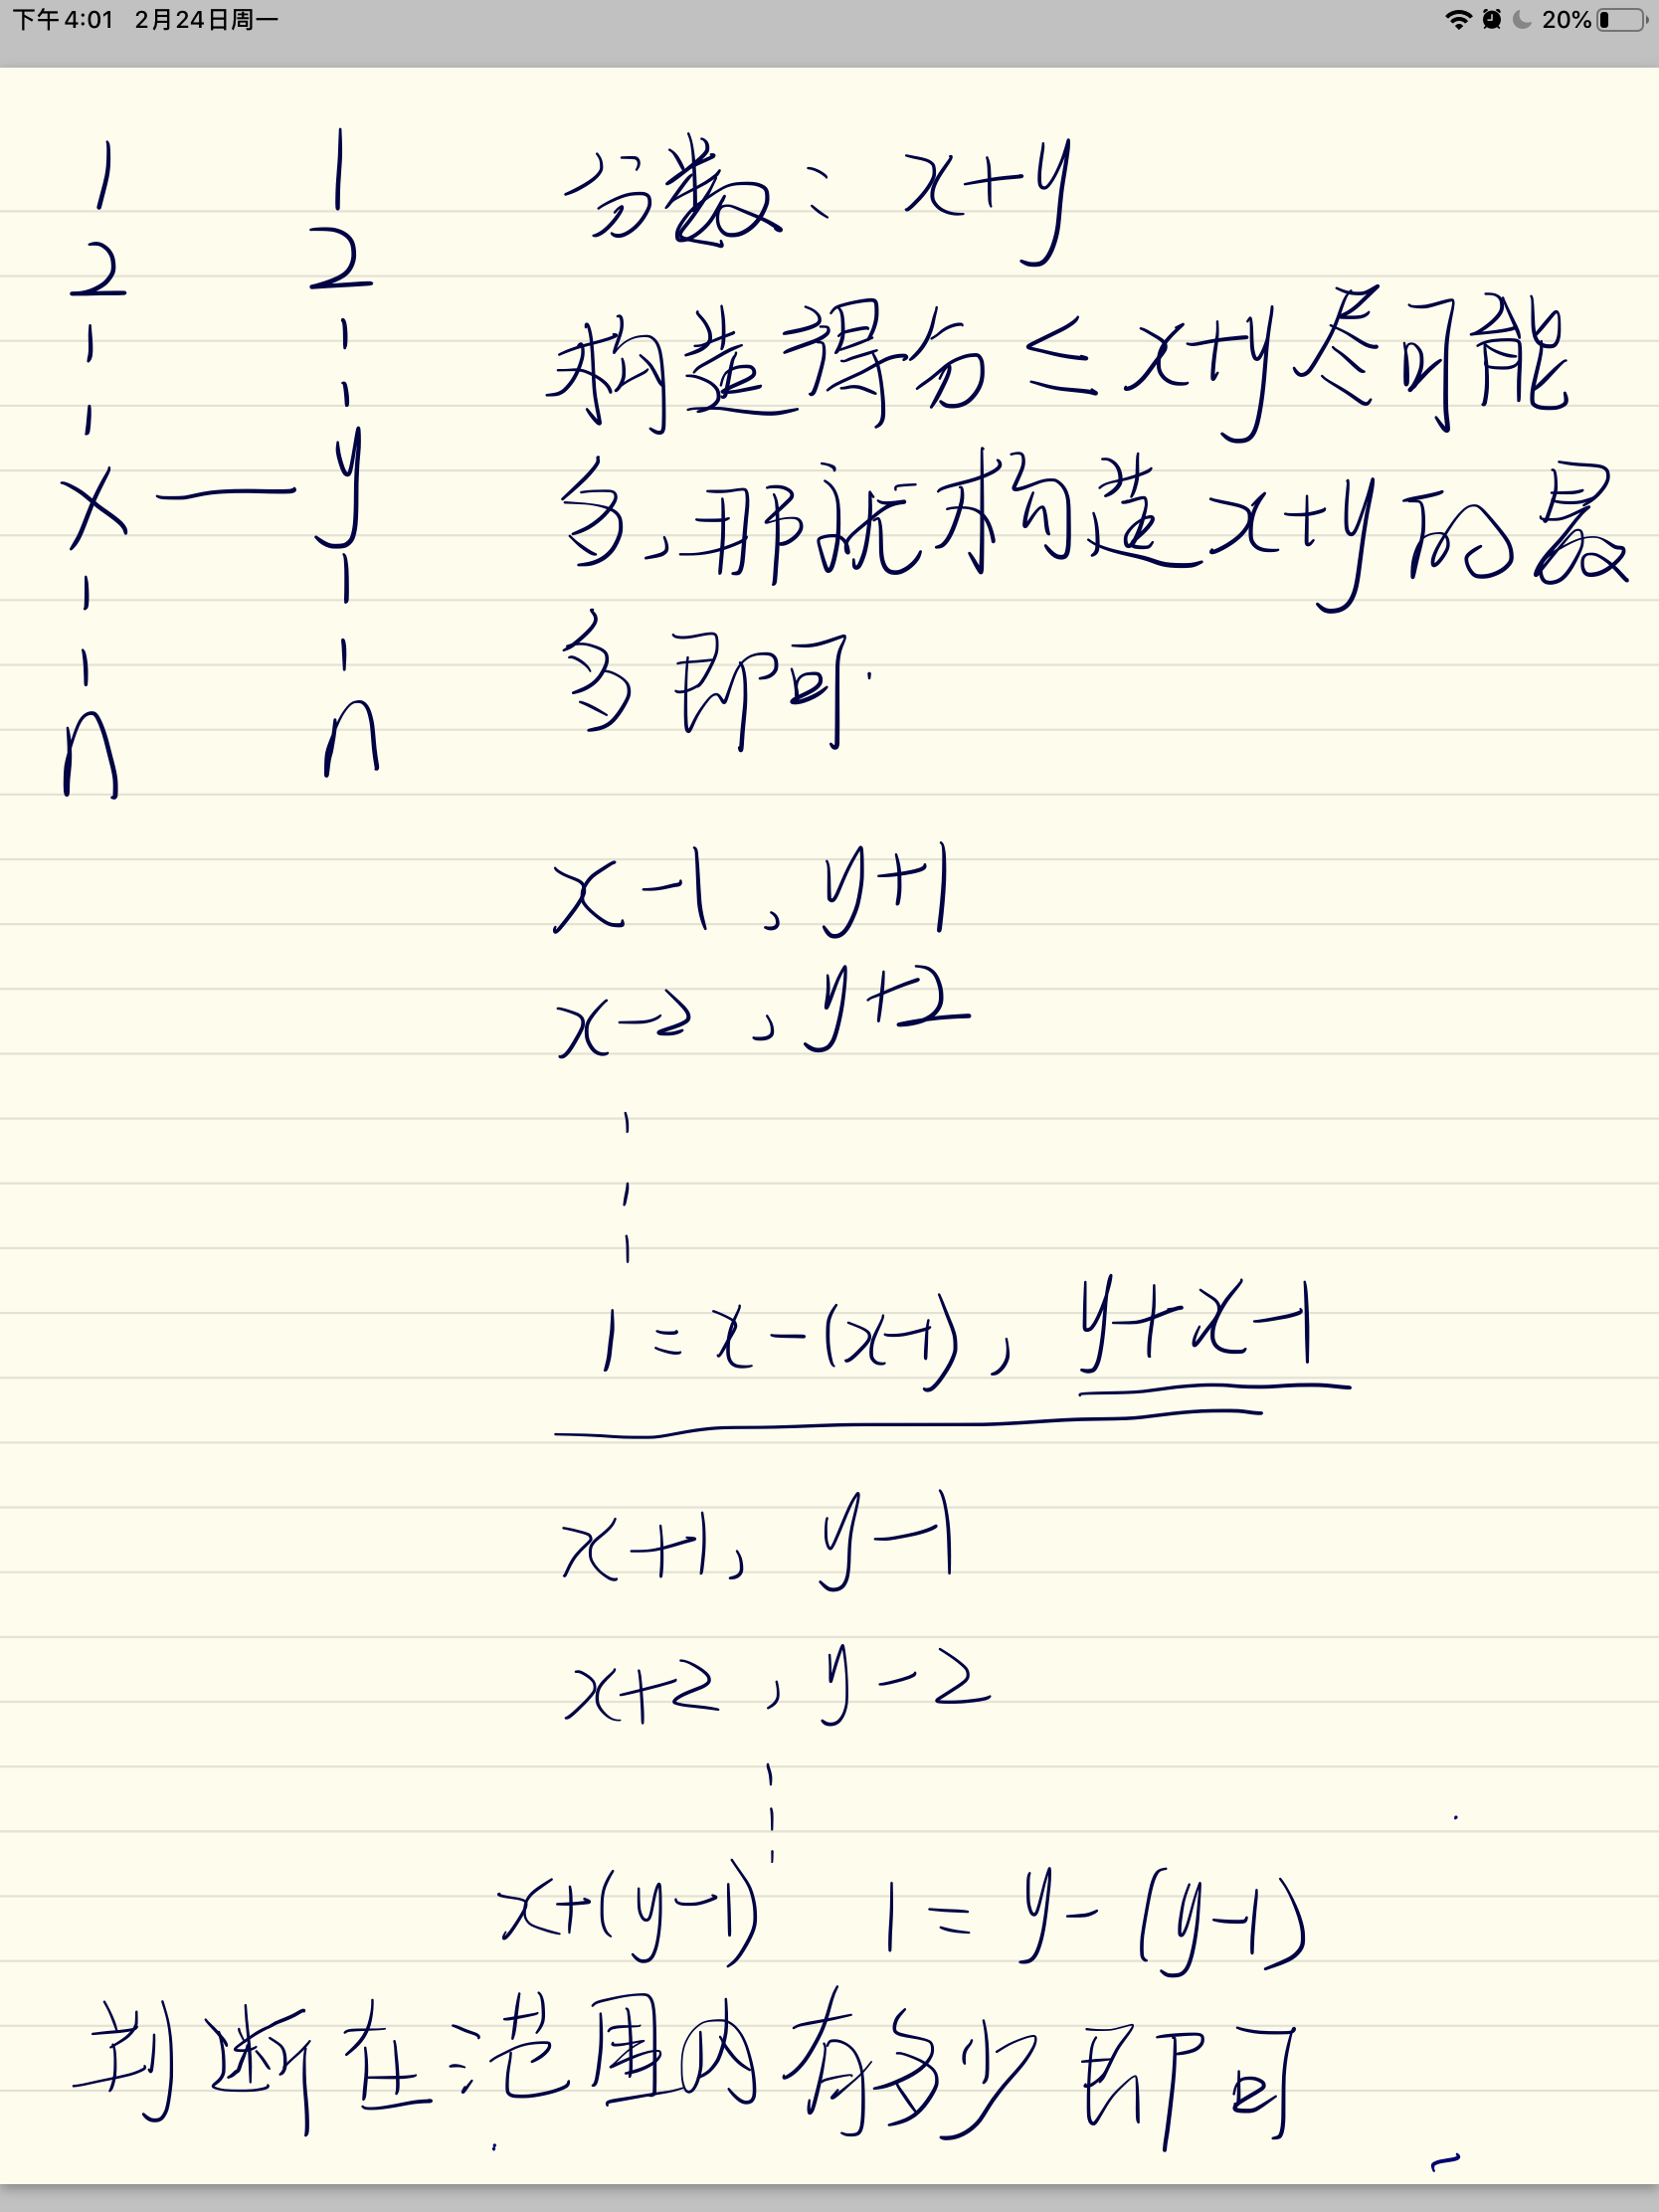 下午4:01 2月24日周一 20%
1 1
2 2
x — y
n n
分数: x+y
构造得分≤x+y尽可能
多,那就构造x+y的最
多即可.
x-1, y+1
x-2, y+2
1=x-(x-1), y+x-1
x+1, y-1
x+2, y-2
x+(y-1) 1=y-(y-1)
判断在范围内有多少即可